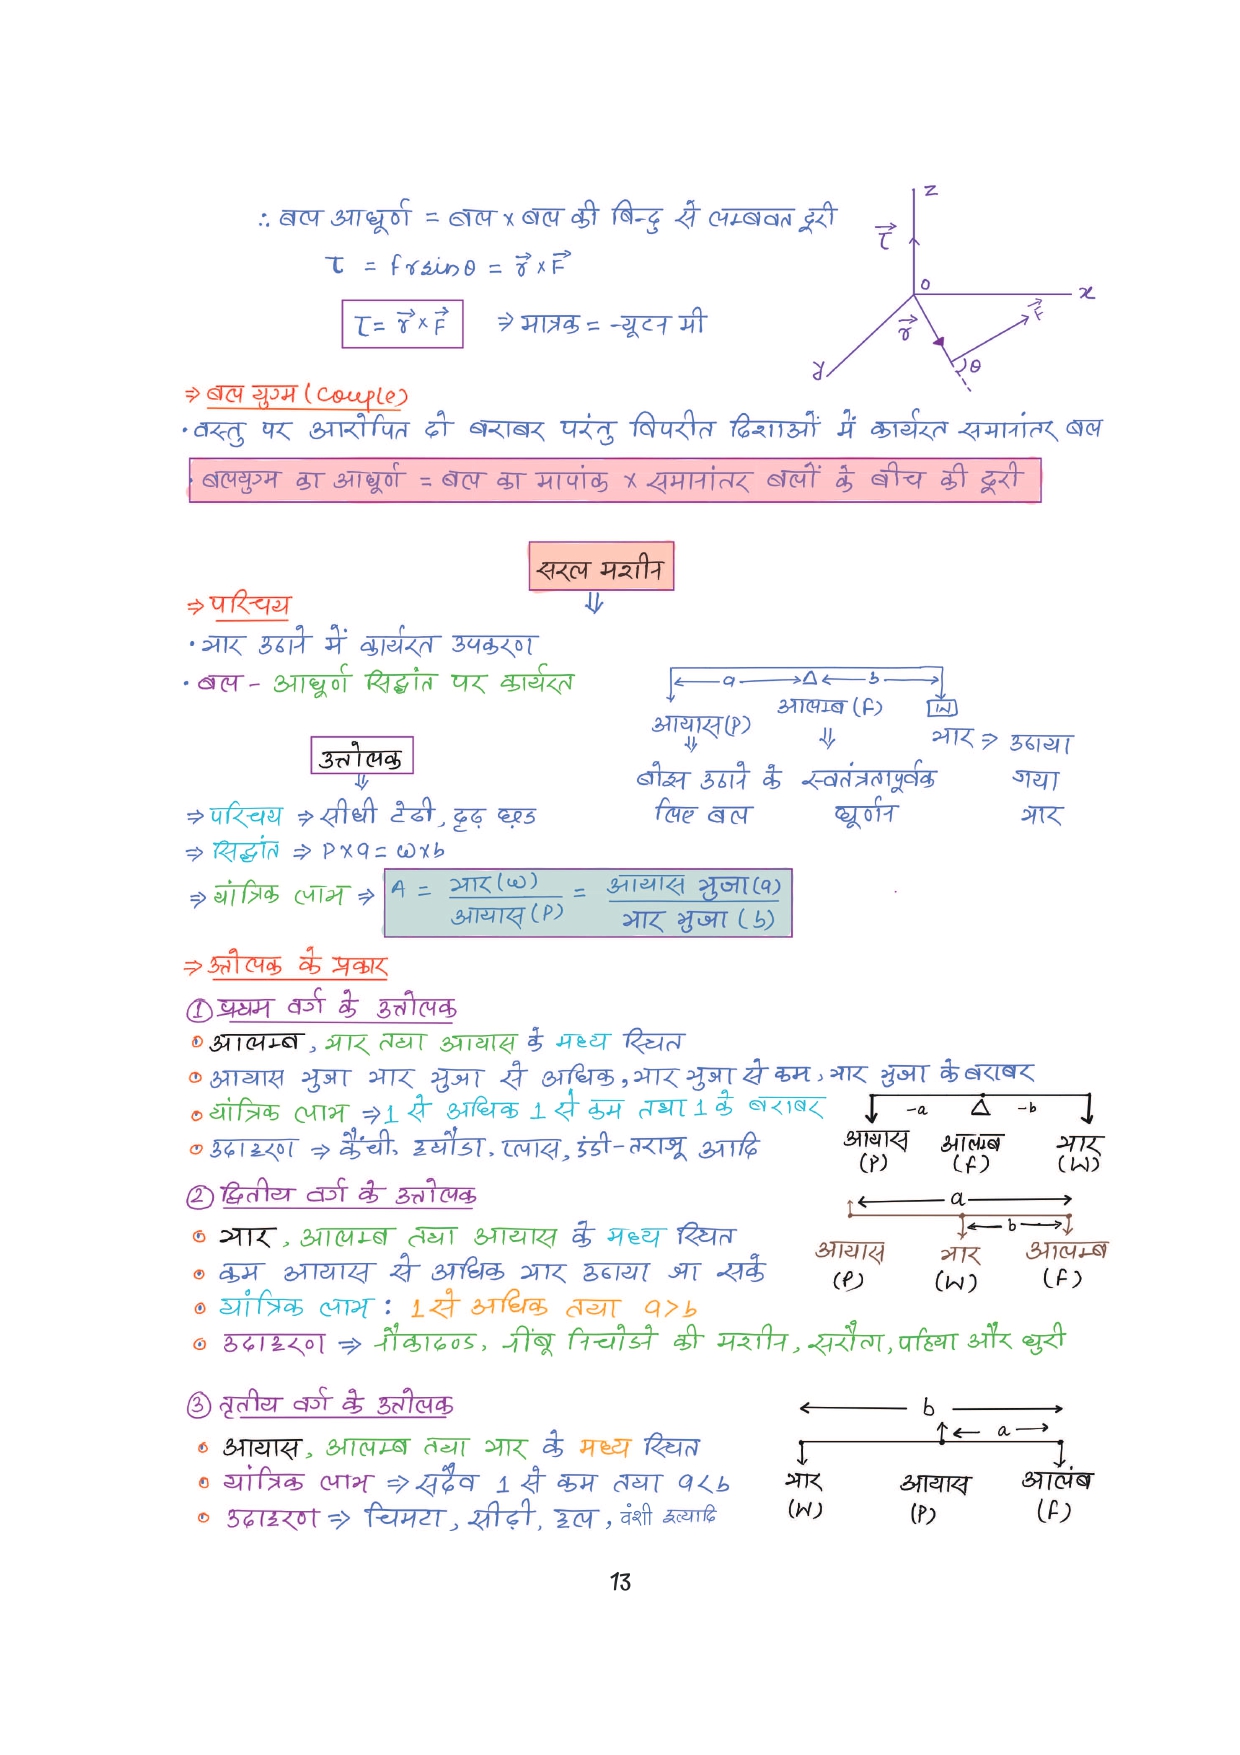 ∴ बल आघूर्ण = बल × बल की बिन्दु से लम्बवत दूरी
τ = Fr sinθ = r⃗ × F⃗
τ = r⃗ × F⃗ ⇒ मात्रक = न्यूटन मी
z
τ⃗
o
x
F⃗
r⃗
θ
y
⇒ बल युग्म (Couple)
• वस्तु पर आरोपित दो बराबर परंतु विपरीत दिशाओं में कार्यरत समानांतर बल
• बलयुग्म का आघूर्ण = बल का मापांक × समानांतर बलों के बीच की दूरी
सरल मशीन
⇓
⇒ परिचय
• भार उठाने में कार्यरत उपकरण
• बल - आघूर्ण सिद्धांत पर कार्यरत
a Δ b
आयास (P) आलम्ब (F) W
⇓ ⇓ भार ⇒ उठाया
बोझ उठाने के स्वतंत्रतापूर्वक गया
लिए बल घूर्णन भार
उत्तोलक
⇓
⇒ परिचय ⇒ सीधी टेढी, दृढ़ छड़
⇒ सिद्धांत ⇒ P×a = W×b
⇒ यांत्रिक लाभ ⇒ A = भार (W) / आयास (P) = आयास भुजा (a) / भार भुजा (b)
⇒ उत्तोलक के प्रकार
① प्रथम वर्ग के उत्तोलक
• आलम्ब, भार तथा आयास के मध्य स्थित
• आयास भुजा भार भुजा से अधिक, भार भुजा से कम, भार भुजा के बराबर
• यांत्रिक लाभ ⇒ 1 से अधिक 1 से कम तथा 1 के बराबर
-a Δ -b
आयास आलम्ब भार
(P) (F) (W)
• उदाहरण ⇒ कैंची, हथौडा, प्लास, डंडी-तराजू आदि
② द्वितीय वर्ग के उत्तोलक
a
b
आयास भार आलम्ब
(P) (W) (F)
• भार, आलम्ब तथा आयास के मध्य स्थित
• कम आयास से अधिक भार उठाया जा सके
• यांत्रिक लाभ : 1 से अधिक तथा a > b
• उदाहरण ⇒ नौकादण्ड, नींबू निचोडने की मशीन, सरौता, पहिया और धुरी
③ तृतीय वर्ग के उत्तोलक
b
a
भार आयास आलंब
(W) (P) (F)
• आयास, आलम्ब तथा भार के मध्य स्थित
• यांत्रिक लाभ ⇒ सदैव 1 से कम तथा a < b
• उदाहरण ⇒ चिमटा, सीढ़ी, हल, वंशी इत्यादि
13